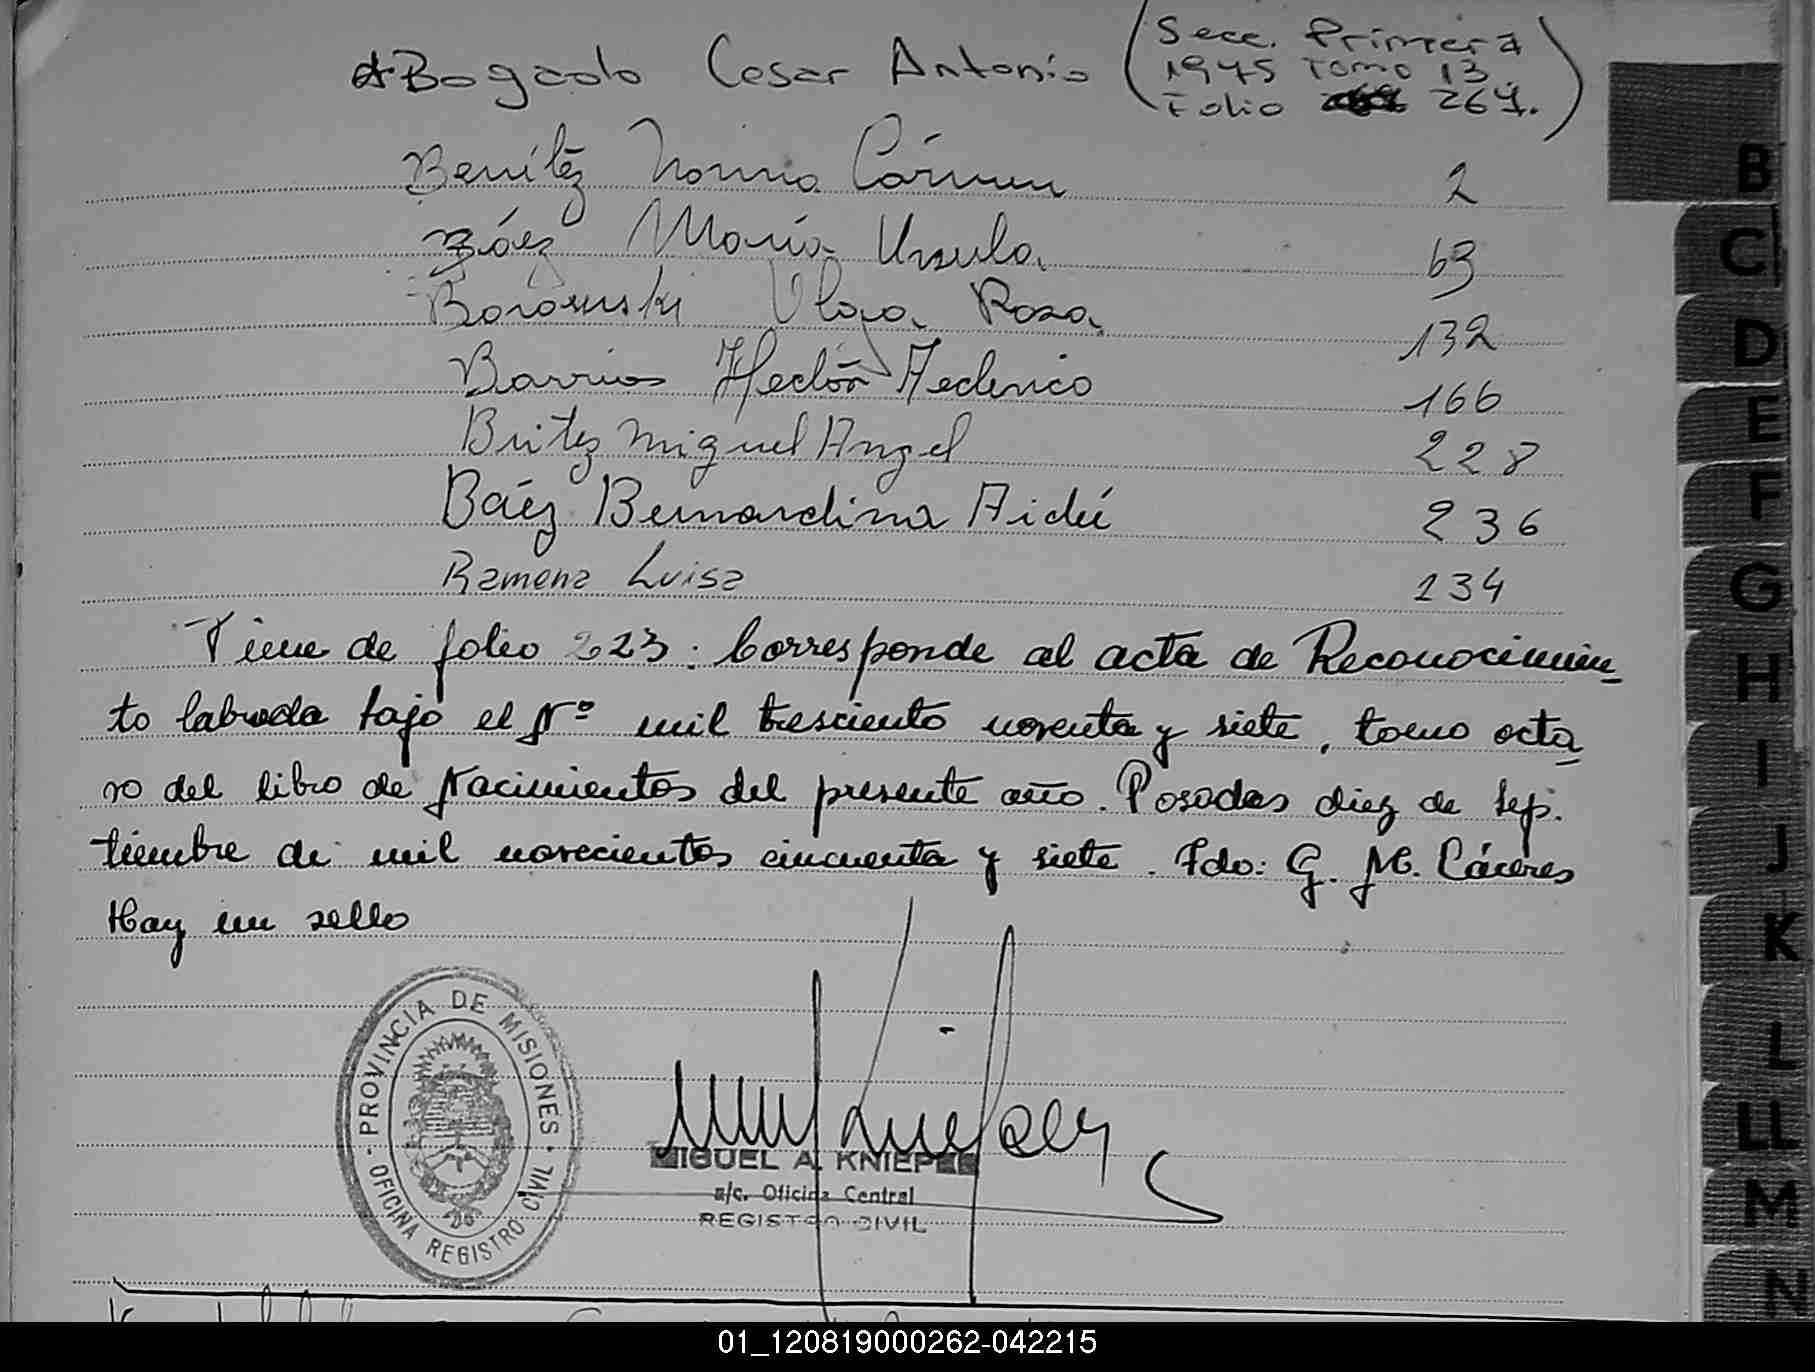 Bogado Cesar Antonio (Secc. Primera
1945 Tomo 13
Folio 264.)
Benítez Norma Cármen 2
Báez María Ursula 63
Borowski Olga Rosa 132
Barrios Hector Federico 166
Britez Miguel Angel 228
Báez Bernardina Aideé 236
Ramona Luisa 134
Viene de folio 223: Corresponde al acta de Reconocimien_
to labrada bajo el Nº mil tresciento noventa y siete, tomo octa_
vo del libro de Nacimientos del presente año. Posadas diez de sep.
tiembre de mil novecientos cincuenta y siete. Fdo: G. M. Cáceres
Hay un sello
PROVINCIA DE MISIONES
OFICINA REGISTRO CIVIL
MIGUEL A. KNIEP
a/c. Oficina Central
REGISTRO CIVIL
B
C
D
E
F
G
H
I
J
K
L
LL
M
N
01_120819000262-042215